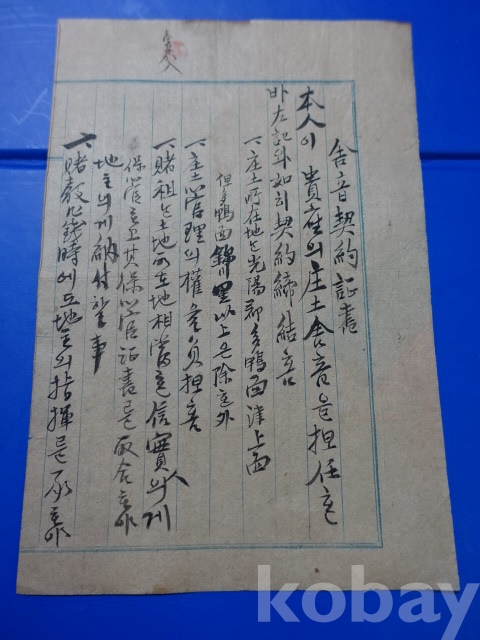 舍音契約証書
本人이 貴座의 庄土舍音을 担任한
바 左記와 如히 契約締結홈
一、庄土所在地는 光陽郡多鴨面津上面
但多鴨面錦川里以上은 除함外
一、庄土管理의 權을 負担홈
一、賭租는 土地所在地相當한 信實人의게
保管하고 其保管証書를 取合하야
地主의게 納付할 事
一、賭穀作錢時에도 地主의 指揮를 承하야
kobay